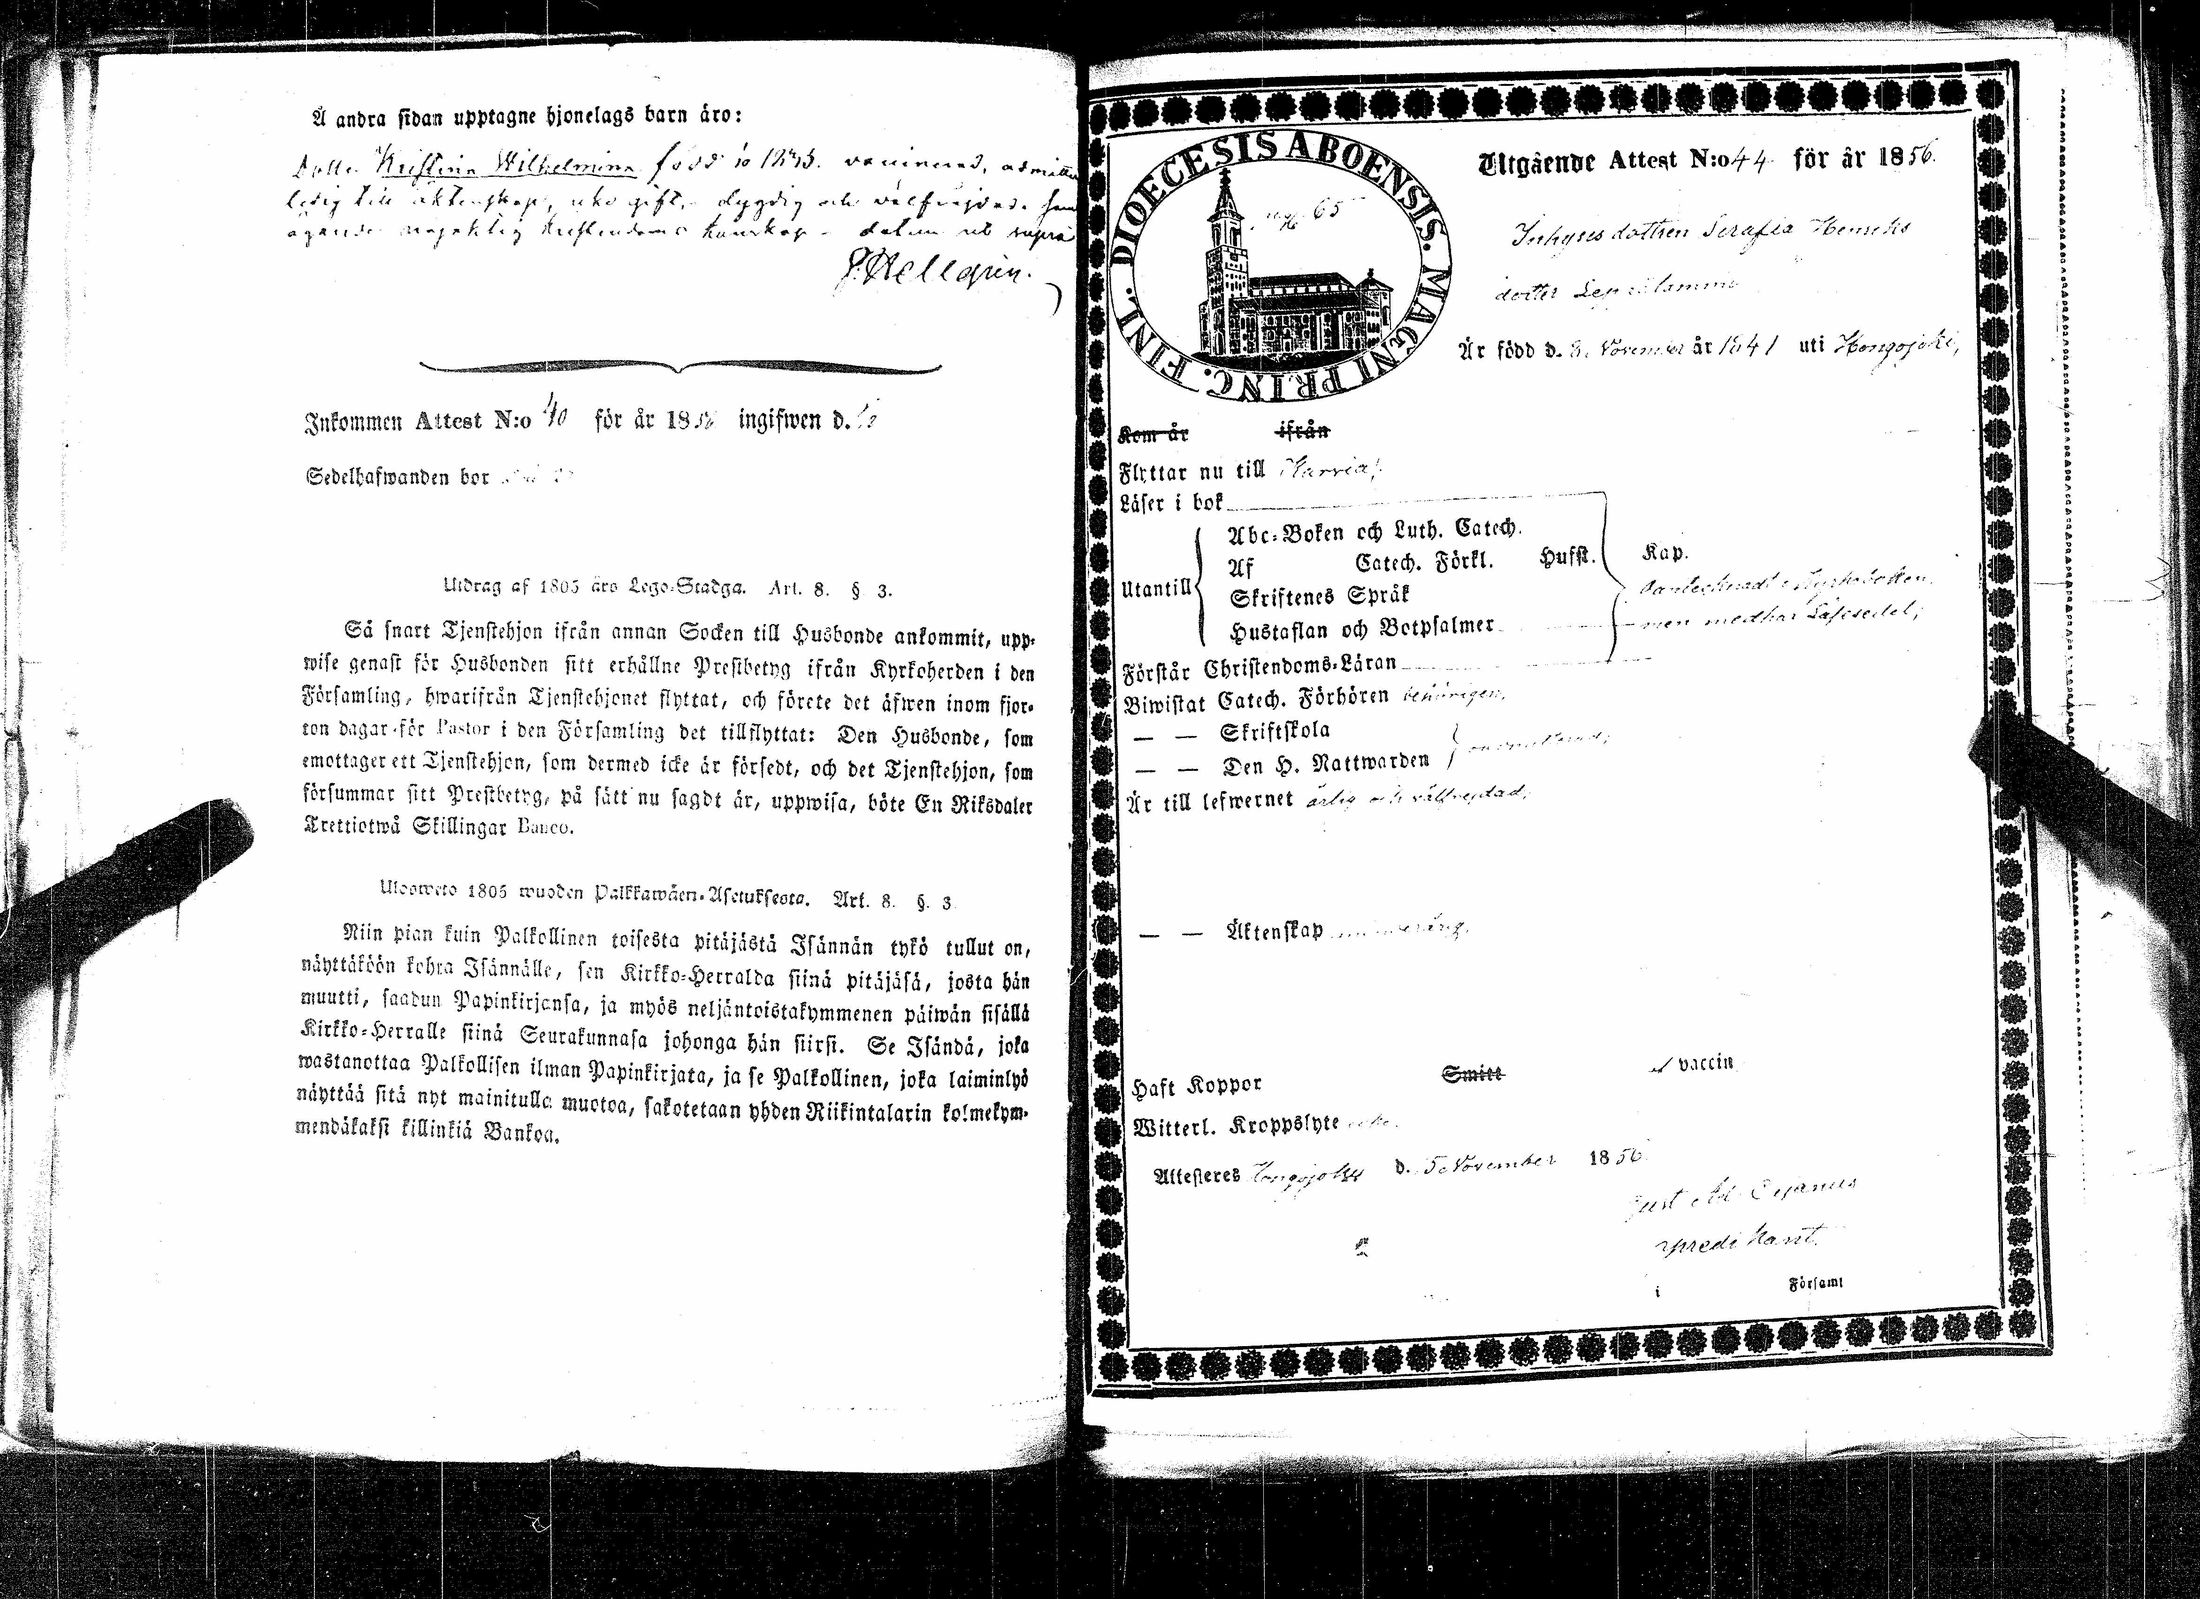 Å andra sidan upptagne hjonelags barn äro:
Kristina Wilhelmina född
ledig till äktenskap, gift, dygdig och välfrejdad.
datum ut supra
Inkommen Attest N:o 40 för år 18 ingifwen d.
Sedelhafwanden bor
Utdrag af 1805 års Lego-Stadga. Art. 8. § 3.
Så snart Tjenstehjon ifrån annan Socken till Husbonde ankommit, upp-
wise genast för Husbonden sitt erhållne Prestbetyg ifrån Kyrkoherden i den
Församling, hwarifrån Tjenstehjonet flyttat, och förete det äfwen inom fjor-
ton dagar för Pastor i den Församling det tillflyttat: Den Husbonde, som
emottager ett Tjenstehjon, som dermed icke är försedt, och det Tjenstehjon, som
försummar sitt Prestbetyg, på sätt nu sagdt är, uppwisa, böte En Riksdaler
Trettiotwå Skillingar Banco.
Ulosweto 1805 wuoden Palkkawäen-Asetuksesta. Art. 8. §. 3.
Niin pian kuin Palkollinen toisesta pitäjästä Isännän tykö tullut on,
näyttäköön kohta Isännälle, sen Kirkko-Herralda siinä pitäjäsä, josta hän
muutti, saadun Papinkirjansa, ja myös neljäntoistakymmenen päiwän sisällä
Kirkko-Herralle siinä Seurakunnasa johonga hän siirsi. Se Isändä, joka
wastanottaa Palkollisen ilman Papinkirjata, ja se Palkollinen, joka laiminlyö
näyttää sitä nyt mainitulla muotoa, sakotetaan yhden Riikintalarin kolmekym-
mendäkaksi killinkiä Bankoa.
DIOECESIS ABOENSIS. MAGNI PRINC. FINL.
65
Utgående Attest N:o 44 för år 1856.
Inhyses dottren Serafia Henriks
dotter
Är född d. November år 1841 uti Hongojoki,
Kom år ifrån
Flyttar nu till Karvia,
Läser i bok
Utantill
Abc-Boken och Luth. Catech.
Af Catech. Förkl. Hufst. Kap.
Skriftenes Språk
Hustaflan och Botpsalmer
men medhar Läsesedel;
Förstår Christendoms-Läran
Biwistat Catech. Förhören behörigen,
— — Skriftskola
— — Den H. Nattwarden
Är till lefwernet ärlig och välfrejdad,
— — Äktenskap
Haft Koppor Smitt vaccin
Witterl. Kroppslyte
Attesteres Hongojoki d. 5 November 1856
Gust Ad Cyganus
predikant.
i Församl